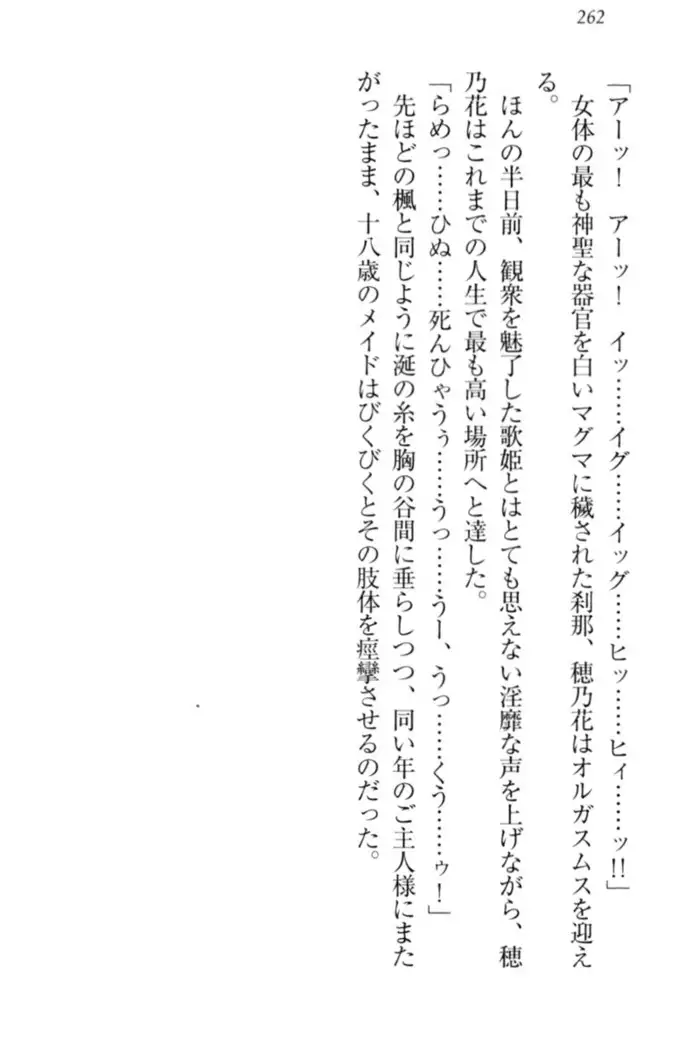 262
「アーッ！　アーッ！　イッ……イグ……イッグ……ヒッ……ヒィ……ッ!!」
　女体の最も神聖な器官を白いマグマに穢された刹那、穂乃花はオルガスムスを迎え
る。
　ほんの半日前、観衆を魅了した歌姫とはとても思えない淫靡な声を上げながら、穂
乃花はこれまでの人生で最も高い場所へと達した。
「らめっ……ひぬ……死んひゃうぅ……うっ……うー、うっ……くう……ゥ！」
　先ほどの楓と同じように涎の糸を胸の谷間に垂らしつつ、同い年のご主人様にまた
がったまま、十八歳のメイドはびくびくとその肢体を痙攣させるのだった。